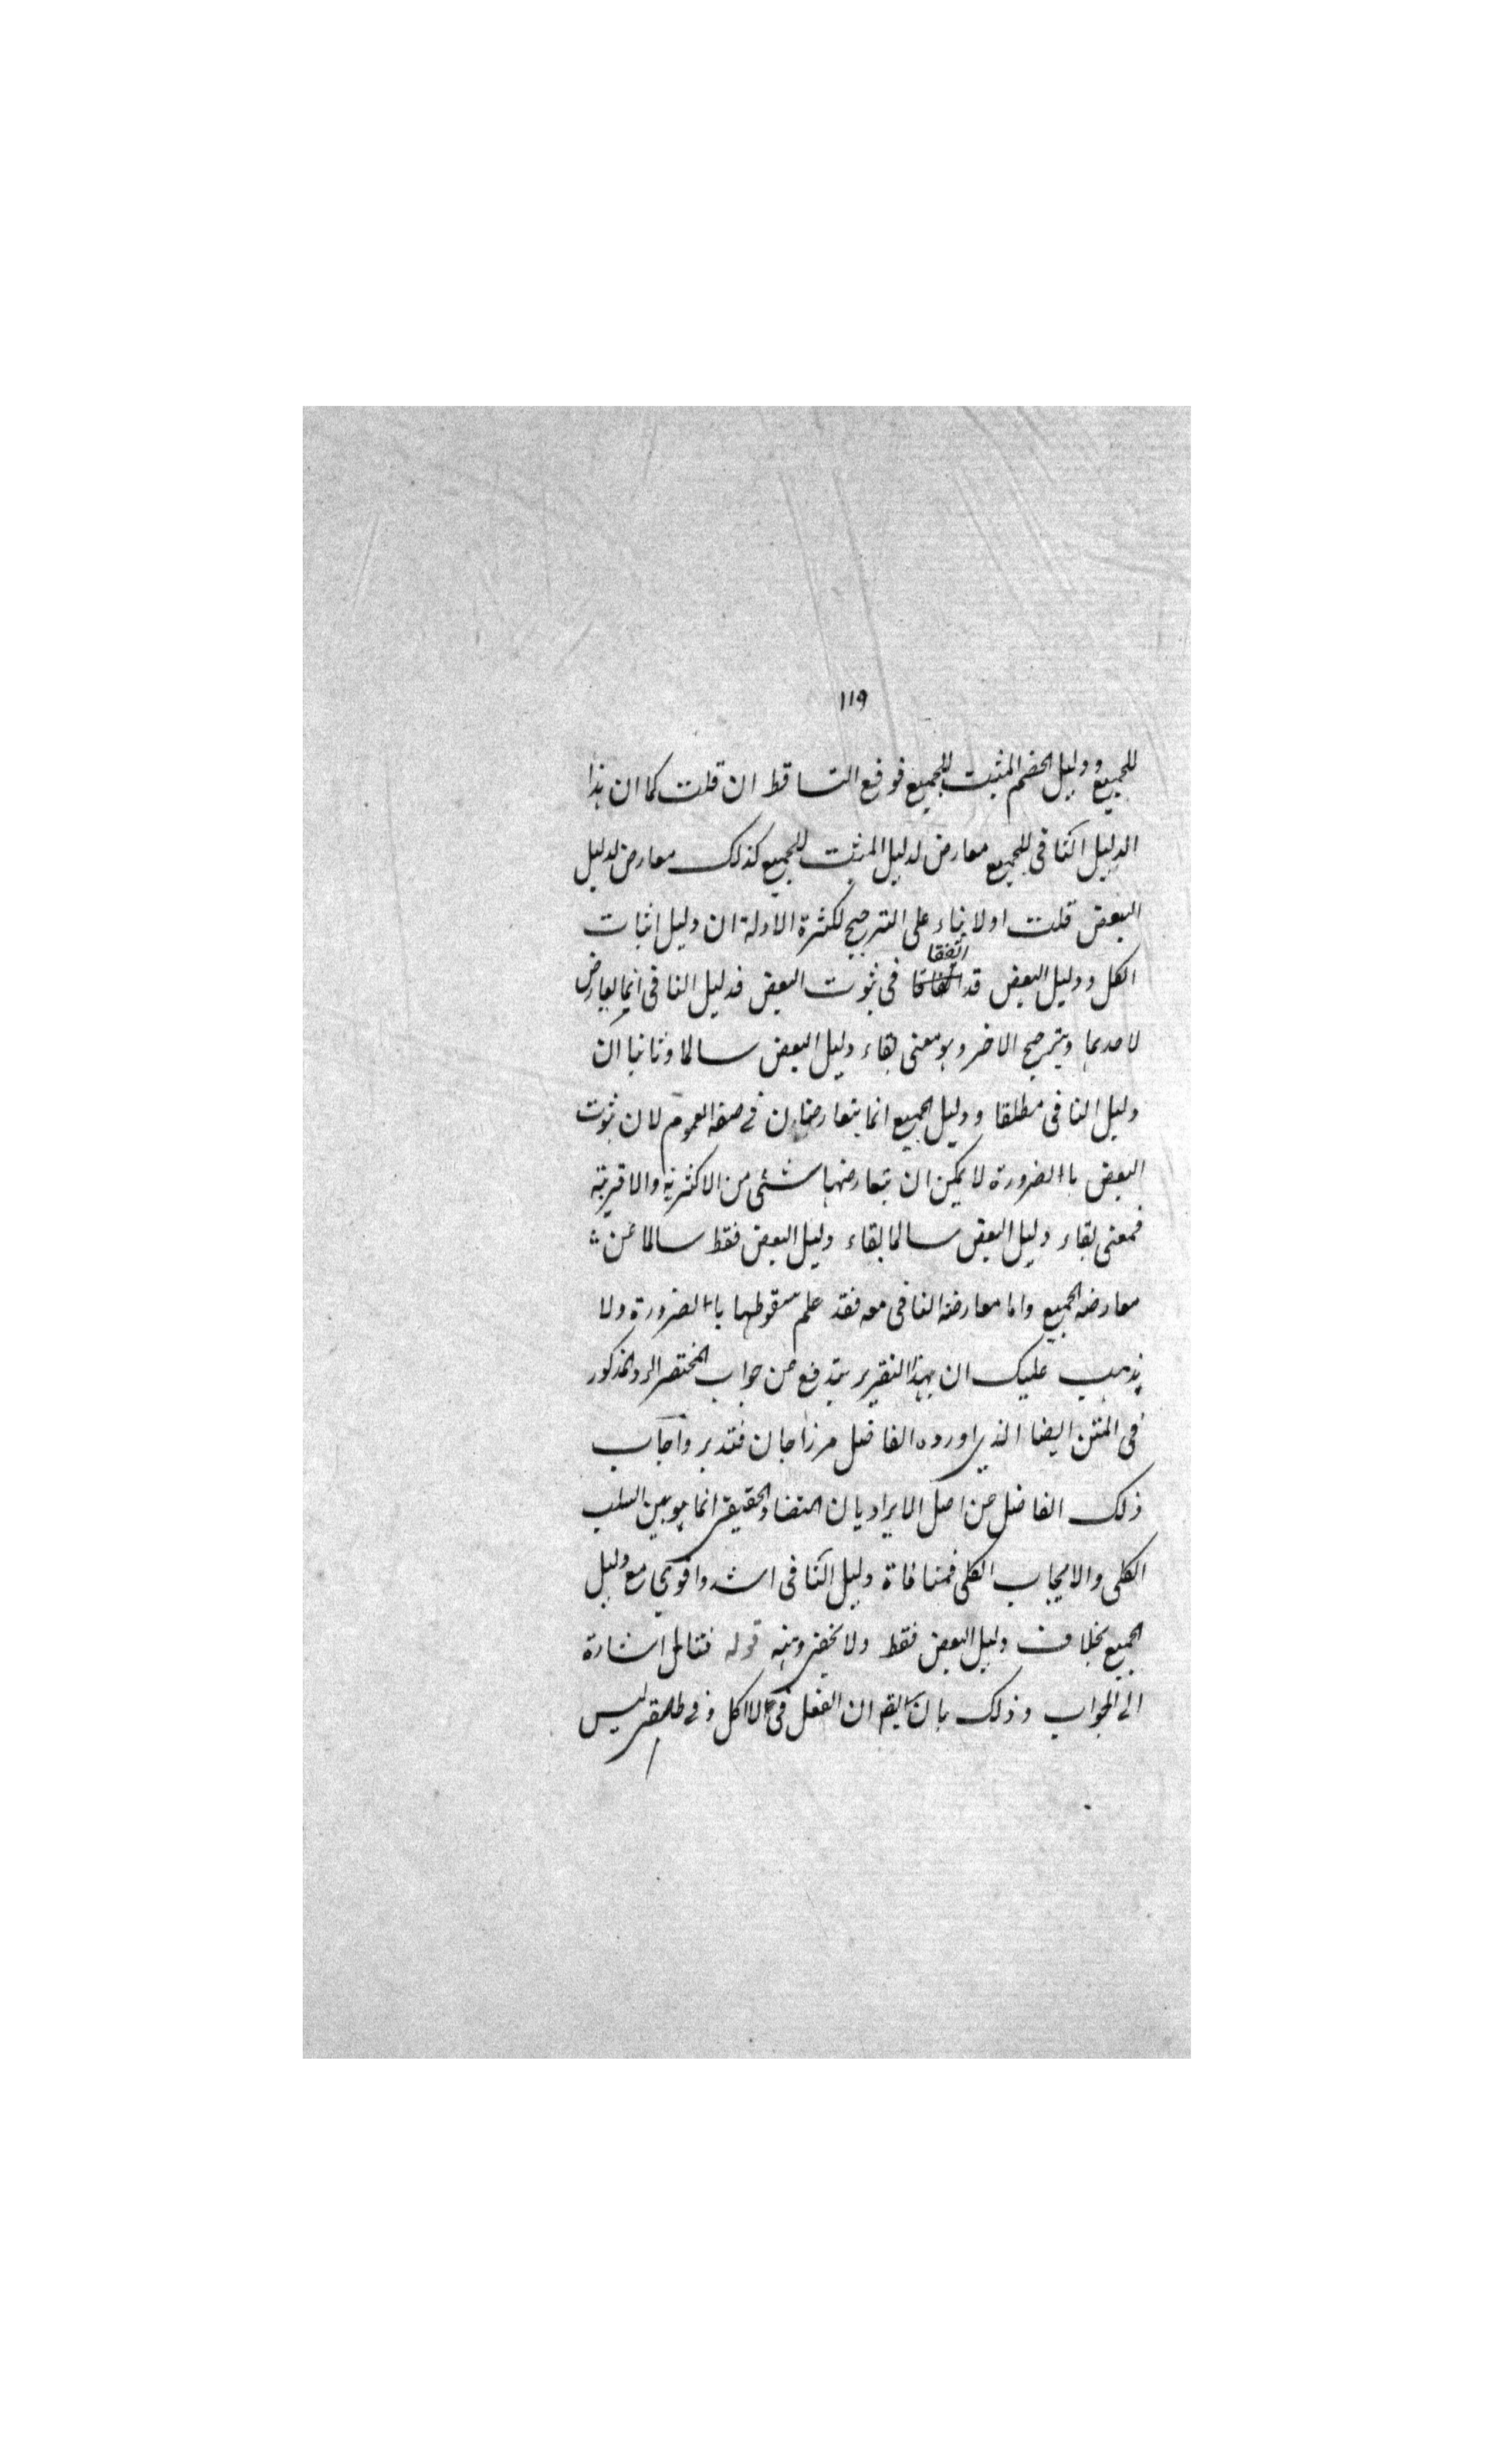 ١١٩
للجميع ودليل الخصم المثبت للجميع فوقع التساقط ان قلت كما ان هذا
الدليل النافى للجميع معارض لدليل المثبت للجميع كذلك معارض لدليل
البعض قلت اولا بناء على الترجيح لكثرة الادلة ان دليل اثبات
الكل ودليل البعض قد اتفقا فى ثبوت البعض فدليل النافى انما يعارض
لاحدهما ويترجح الاخر وهو معنى بقاء دليل البعض سالما وثانيا ان
دليل النافى مطلقا ودليل الجميع انما يتعارضان فى صفة العموم لان ثبوت
البعض باالضرورة لا يمكن ان يتعارضها شئى من الاكثرية والاقربية
فمعنى بقاء دليل البعض سالما بقاء دليل البعض فقط سالما عن
معارضة الجميع واما معارضة النافى معه فقد علم سقوطها باالضرورة ولا
يذهب عليك ان بهذا التقرير يندفع عن جواب المختصر الرد المذكور
فى المتن ايضا الذى اورده الفاضل مرزاجان فتدبر واجاب
ذلك الفاضل عن اصل الايراد بان التضاد الحقيقى انما هو بين السلب
الكلى والايجاب الكلى فمنافاة دليل النافى اشد واقوى مع دليل
الجميع بخلاف دليل البعض فقط ولا يخفى وهنه قوله فتامل اشارة
الى الجواب وذلك بان يقم ان الفعل فى لا اكل وفى ليس